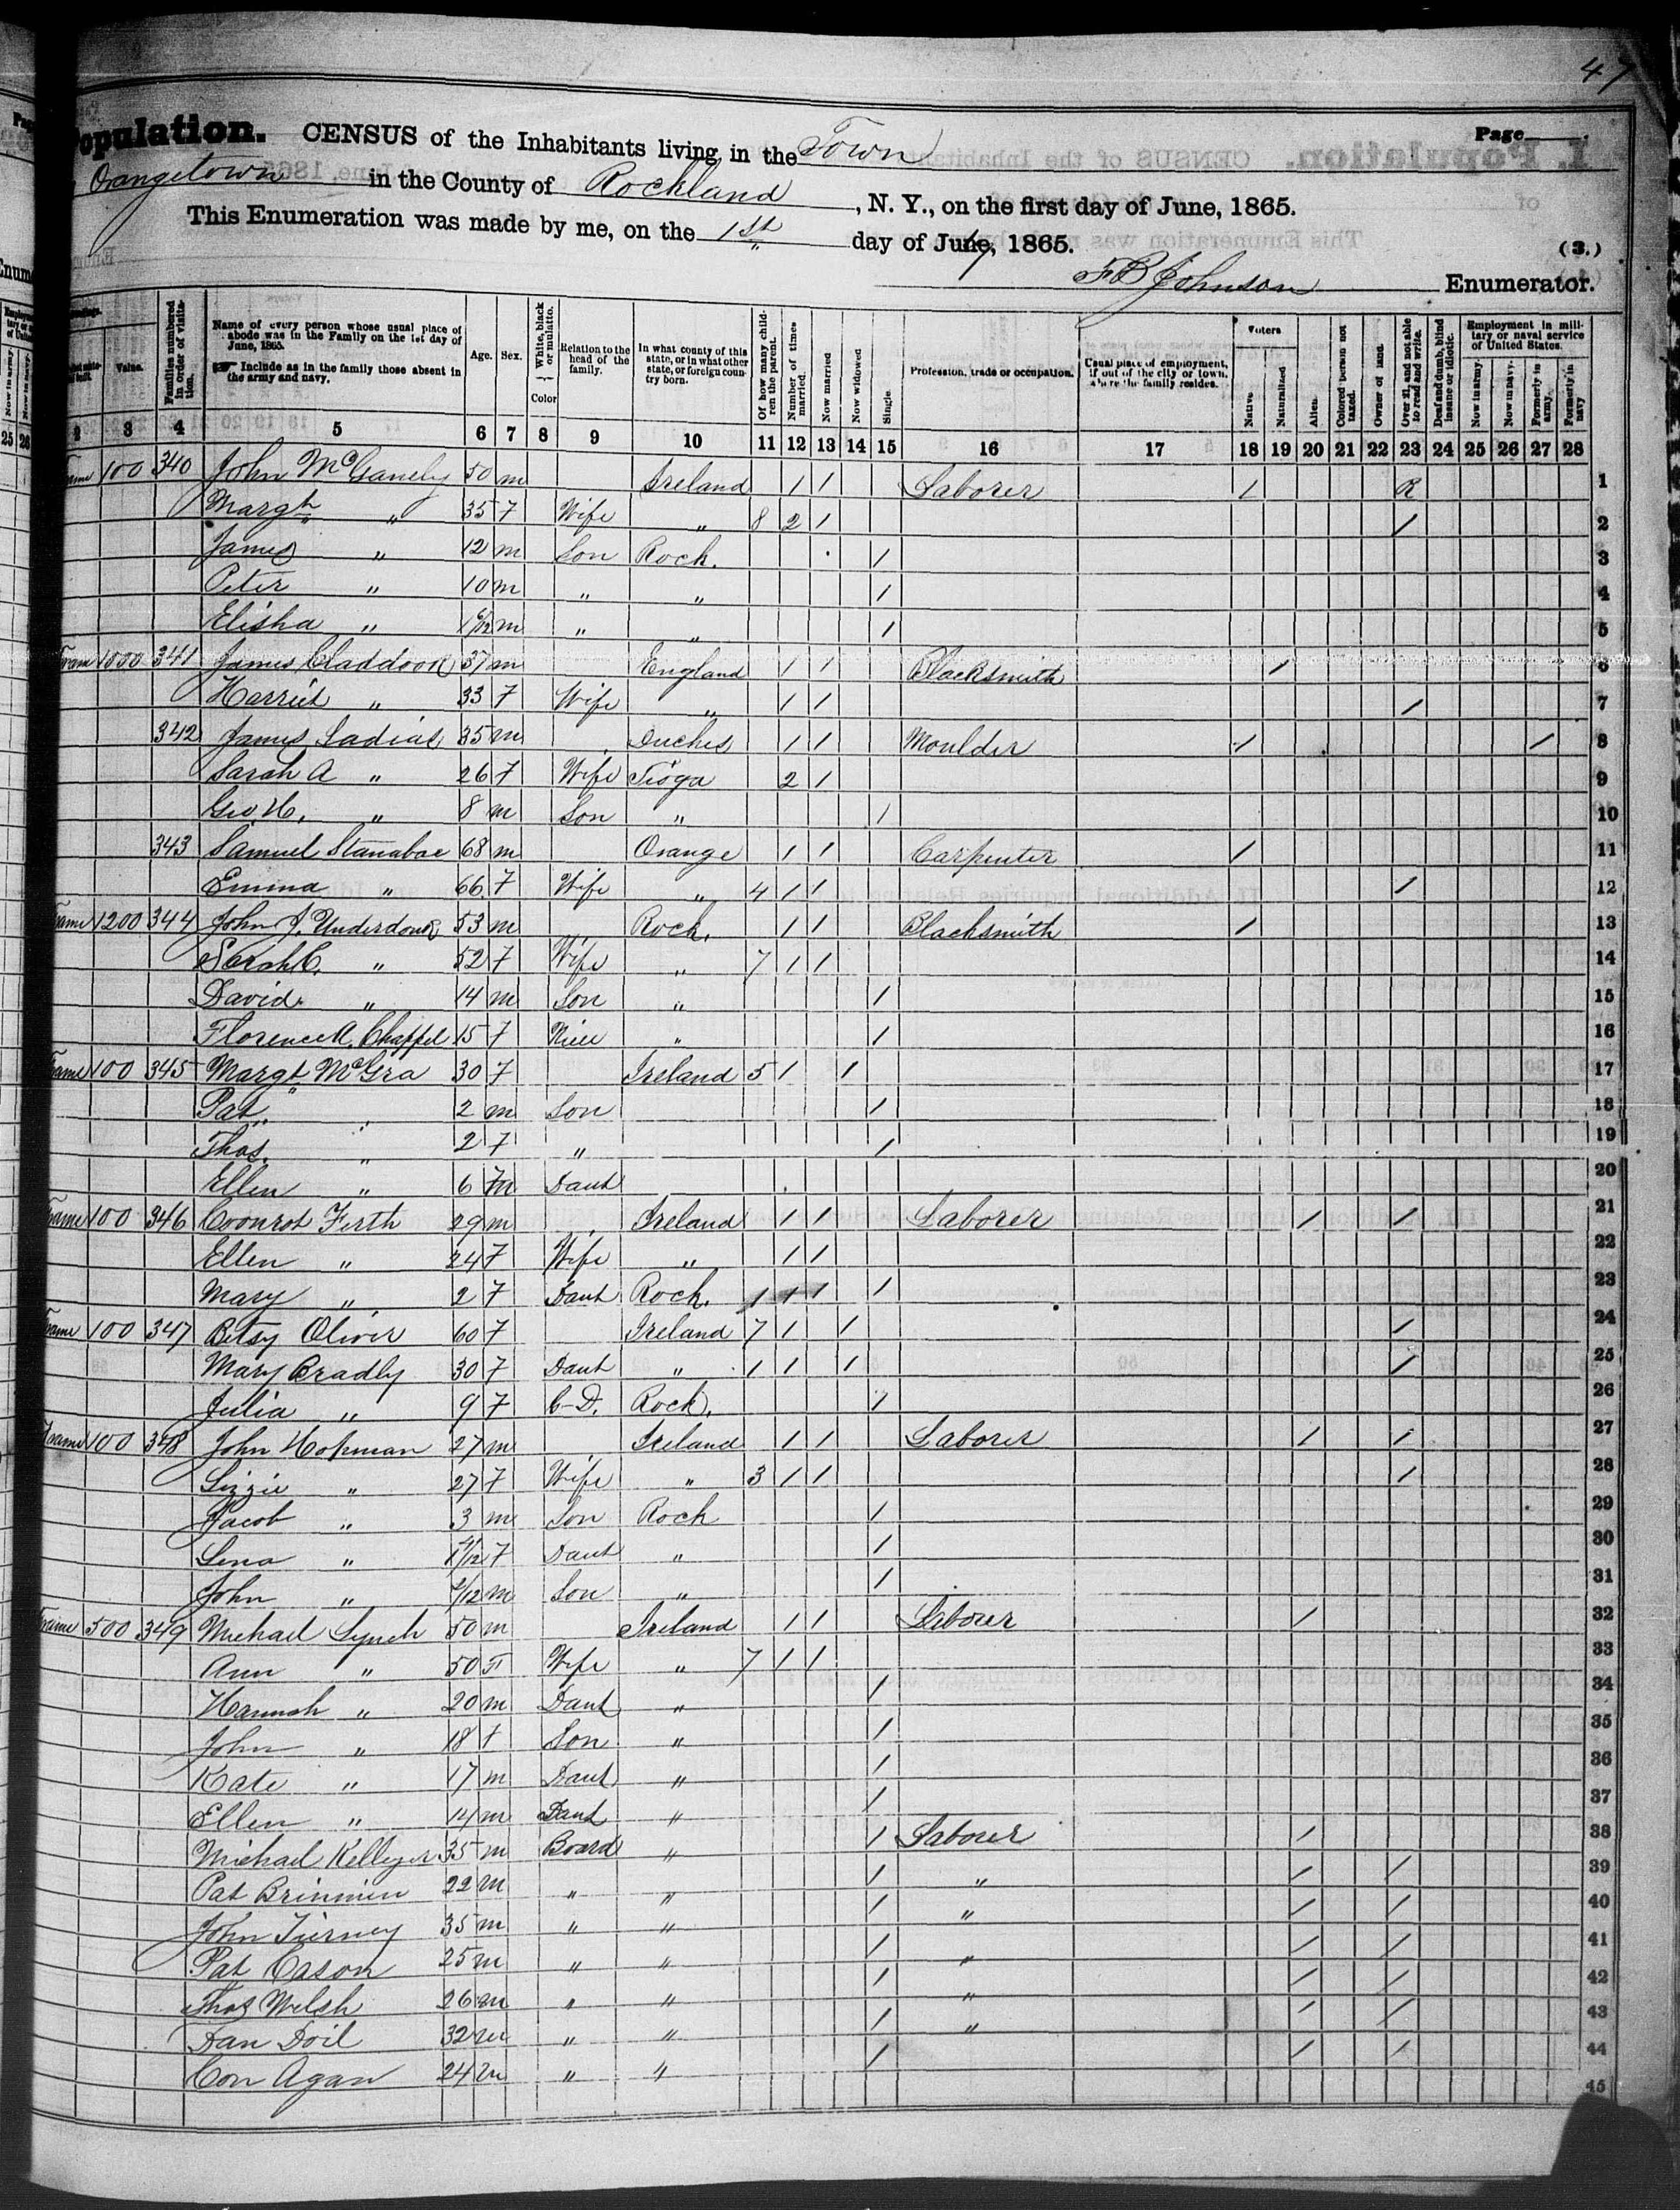 47
Population. CENSUS of the Inhabitants living in the Town Page
Orangetown in the County of Rockland, N. Y., on the first day of June, 1865.
This Enumeration was made by me, on the 1st day of June, 1865.
(3.)
F B Johnson Enumerator.
Value. Families numbered in order of visitation. Name of every person whose usual place of abode was in the Family on the 1st day of June, 1865. Include as in the family those absent in the army and navy. Age. Sex. White, black or mulatto. Color Relation to the head of the family. In what county of this state, or in what other state, or foreign country born. Of how many children the parent. Number of times married. Now married Now widowed Single. Profession, trade or occupation. Usual place of employment, if out of the city or town, where the family resides. Voters Native Naturalized Alien. Colored person not taxed. Owner of land. Over 21, and not able to read and write. Deaf and dumb, blind insane or idiotic. Employment in military or naval service of United States. Now in army. Now in navy. Formerly in army. Formerly in navy
2 3 4 5 6 7 8 9 10 11 12 13 14 15 16 17 18 19 20 21 22 23 24 25 26 27 28
100 340 John 50 m Ireland 1 1 Laborer 1 R 1
Margt " 35 F Wife " 8 2 1 1 2
James " 12 m Son Rock. 1 3
Peter " 10 m " " 1 4
Elisha " m " " 1 5
Fram 341 James Claddook 37 m England 1 1 Blacksmith 1 6
Harriet " 33 F Wife " 1 1 1 7
342 James Ladial 35 m Duches 1 1 Moulder 1 1 8
Sarah A " 26 F Wife Tioga 2 1 9
Geo. H. " 8 m Son " 1 10
343 Samuel Stanabac 68 m Orange 1 1 Carpenter 1 11
Emma " 66 F Wife " 4 1 1 1 12
Frame 1200 344 John J. Underdonk 53 m Rock. 1 1 Blacksmith 1 13
Sarah C. " 52 F Wife " 7 1 1 14
David " 14 m Son " 1 15
Florence A. Chappel 15 F Niece " 1 16
Frame 100 345 Margt McGra 30 F Ireland 5 1 1 17
Pat " 2 m Son 1 18
Thos. " 2 F " 1 19
Ellen " 6 Daut 20
Frame 100 346 Coonrot Firth 29 m Ireland 1 1 Laborer 1 1 21
Ellen " 24 F Wife " 1 1 22
Mary " 2 F Daut Rock. 1 1 1 1 23
Frame 100 347 Betsy Oliver 60 F Ireland 7 1 1 1 24
Mary Bradly 30 F Daut " 1 1 1 1 25
Julia " 9 F Rock. 1 26
Frame 100 348 John Hopman 27 m Ireland 1 1 Laborer 1 1 27
Lizzie " 27 F Wife " 3 1 1 1 28
Jacob " 3 m Son Rock 1 29
Lena " F Daut " 1 30
John " m Son " 1 31
Frame 500 349 Michael Lynch 50 m Ireland 1 1 Laborer 1 32
Ann " 50 F Wife " 7 1 1 33
Hannah " 20 m Daut " 1 34
John " 18 f Son " 1 35
Kate " 17 m Daut " 1 36
Ellen " 14 m Daut " 1 37
Michael Kellyer 35 m Board " 1 Laborer 1 38
Pat Brinnin 22 m " " 1 " 1 1 39
John Tierney 35 m " " 1 " 1 1 40
Pat Cason 25 m " " 1 " 1 1 41
Thos Welsh 26 m " " 1 " 1 1 42
Dan Doil 32 m " " 1 " 1 1 43
Con Agan 24 m " " 1 1 1 44
45